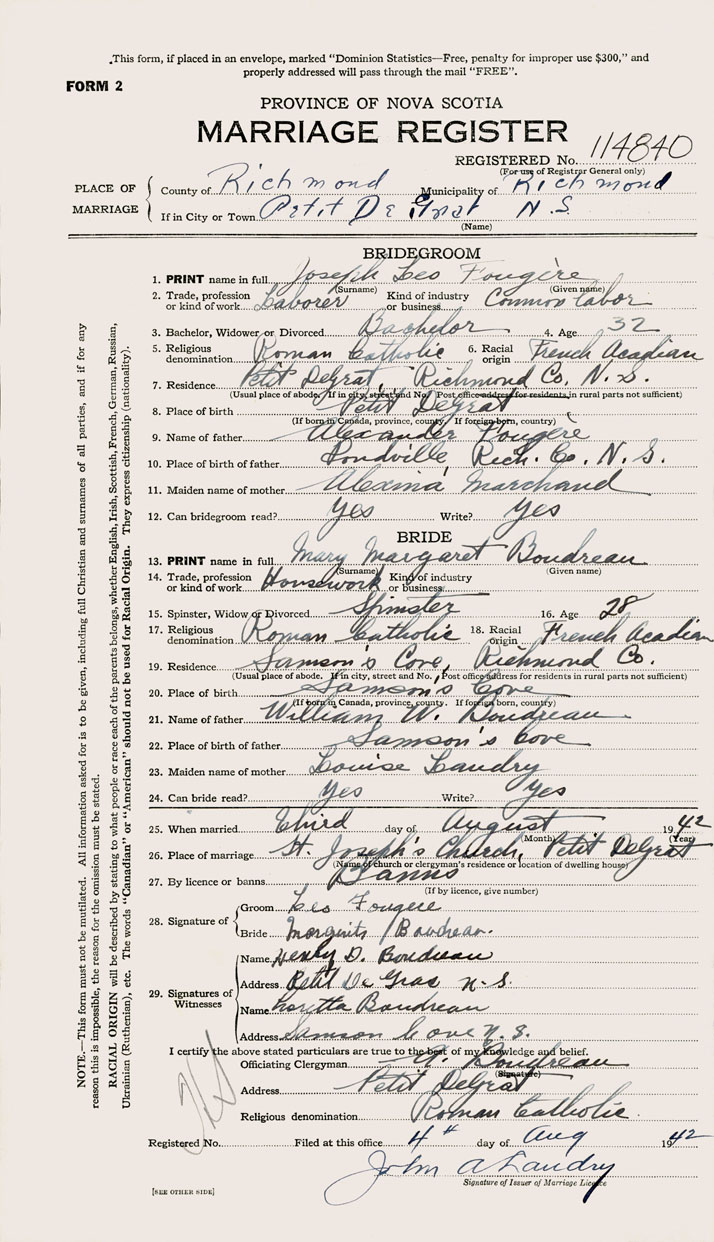 This form, if placed in an envelope, marked "Dominion Statistics—Free, penalty for improper use $300," and
properly addressed will pass through the mail "FREE".
FORM 2
PROVINCE OF NOVA SCOTIA
MARRIAGE REGISTER
REGISTERED No. 114840
(For use of Registrar General only)
PLACE OF MARRIAGE
County of Richmond Municipality of Richmond
If in City or Town Petit De Grat N.S.
(Name)
BRIDEGROOM
1. PRINT name in full Joseph Leo Fougère
(Surname) (Given name)
2. Trade, profession or kind of work Laborer Kind of industry or business Common labor
3. Bachelor, Widower or Divorced Bachelor 4. Age 32
5. Religious denomination Roman Catholic 6. Racial origin French Acadian
7. Residence Petit Degrat, Richmond Co. N.S.
(Usual place of abode. If in city, street and No. Post office address for residents in rural parts not sufficient)
8. Place of birth Petit Degrat
(If born in Canada, province, county. If foreign born, country)
9. Name of father Alexander Fougère
10. Place of birth of father Pondville Rich. Co. N.S.
11. Maiden name of mother Alexina Marchand
12. Can bridegroom read? Yes Write? Yes
BRIDE
13. PRINT name in full Mary Margaret Boudreau
(Surname) (Given name)
14. Trade, profession or kind of work Housework Kind of industry or business
15. Spinster, Widow or Divorced Spinster 16. Age 28
17. Religious denomination Roman Catholic 18. Racial origin French Acadian
19. Residence Samson's Cove, Richmond Co.
(Usual place of abode. If in city, street and No. Post office address for residents in rural parts not sufficient)
20. Place of birth Samson's Cove
(If born in Canada, province, county. If foreign born, country)
21. Name of father William W. Boudreau
22. Place of birth of father Samson's Cove
23. Maiden name of mother Louise Landry
24. Can bride read? Yes Write? Yes
25. When married Third day of August 1942
(Month) (Year)
26. Place of marriage St. Joseph's Church, Petit Degrat
(Name of church or clergyman's residence or location of dwelling house)
27. By licence or banns Banns
(If by licence, give number)
28. Signature of
Groom Leo Fougere
Bride Margurite Boudreau.
29. Signatures of Witnesses
Name Henry D. Boudreau
Address Petit De Gras N.S.
Name Loretta Boudreau
Address Samson Cove N.S.
I certify the above stated particulars are true to the best of my knowledge and belief.
Officiating Clergyman Boudreau
(Signature)
Address Petit Degrat
Religious denomination Roman Catholic
Registered No. Filed at this office 4th day of Aug 1942
John A Landry
Signature of Issuer of Marriage Licence
[SEE OTHER SIDE]
NOTE.—This form must not be mutilated. All information asked for is to be given, including full Christian and surnames of all parties, and if for any
reason this is impossible, the reason for the omission must be stated.
RACIAL ORIGIN will be described by stating to what people or race each of the parents belongs, whether English, Irish, Scottish, French, German, Russian,
Ukrainian (Ruthenian), etc. The words "Canadian" or "American" should not be used for Racial Origin. They express citizenship (nationality).